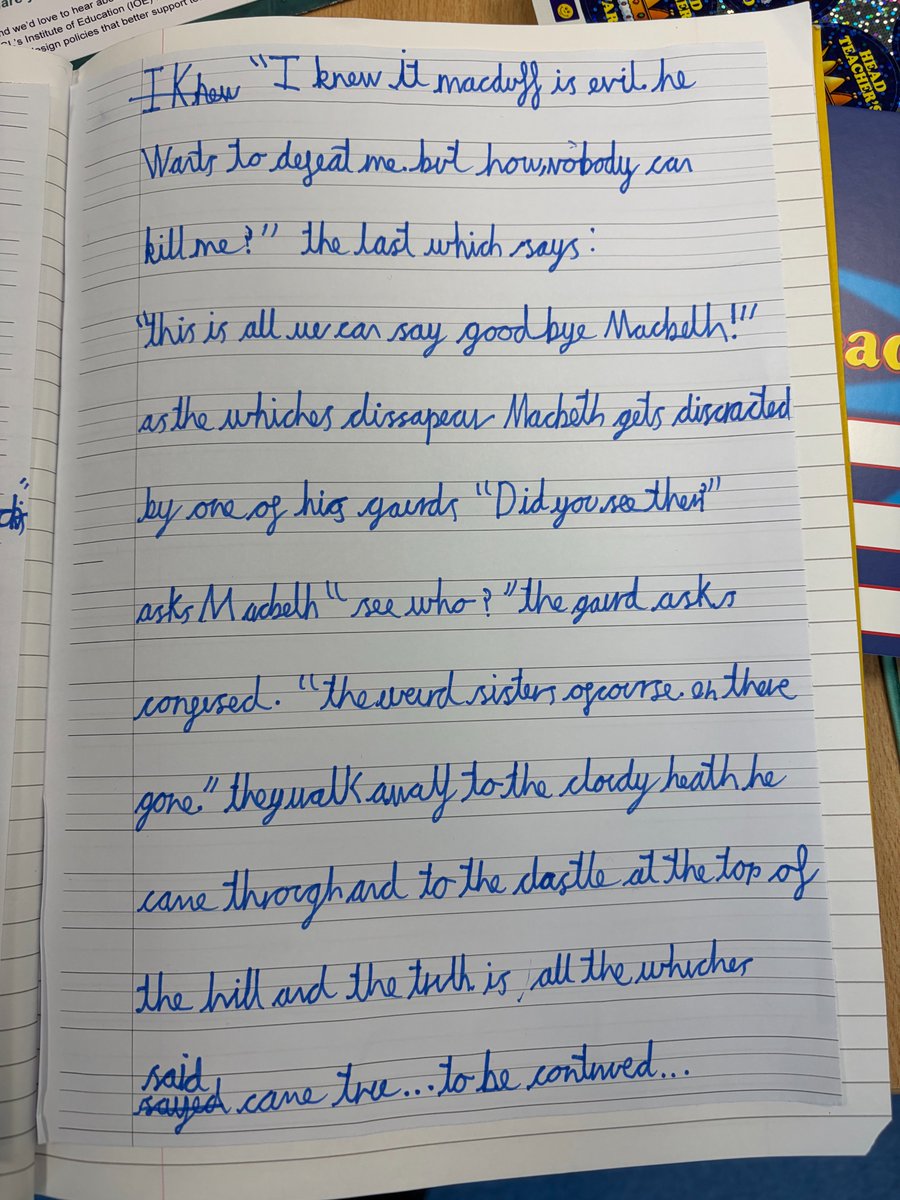 nd we'd love to hear abou
CL's Institute of Education (IOE)
esign policies that better support
HEAD
TEACHER'S
I Khew "I knew it macduff is evil. he
Wants to defeat me. but how, nobody can
kill me?" the last which says:
"this is all we can say good bye Macbeth!"
as the whiches dissapear Macbeth gets discracted
by one of his gaurds "Did you see them?"
asks Macbeth "see who?" the gaurd asks
confused. "the weird sisters ofcourse. oh there
gone." they walk away to the cloudy heath he
came through and to the castle at the top of
the hill and the truth is, all the whiches
said
sayed came true...to be contuned...